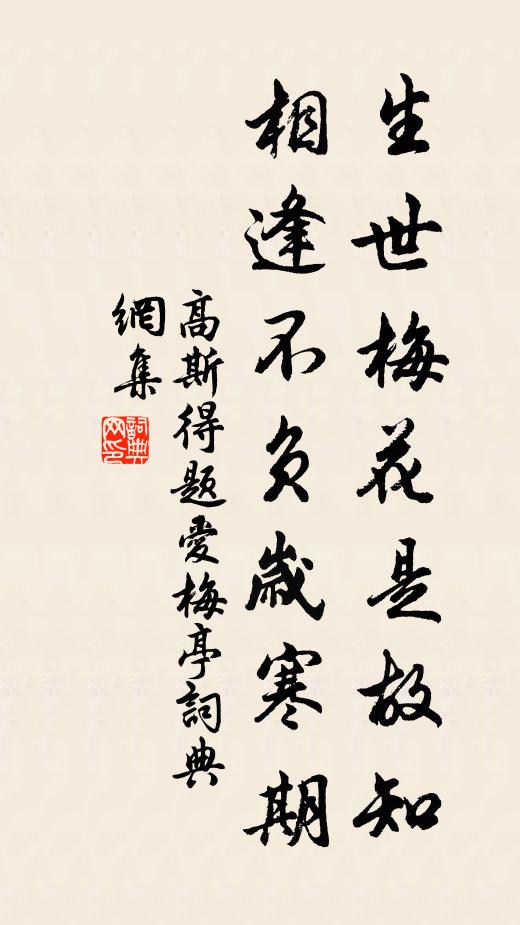 生世梅花是故知
相逢不负歲寒期
高斯得题愛梅亭詞典
網集
詞典
网印